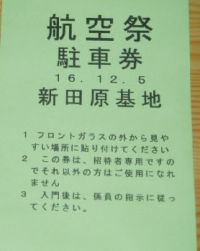 航空祭
駐車券
16.12.5
新田原基地
1 フロントガラスの外から見や
すい場所に貼り付けてください
2 この券は、招待者専用ですの
でそれ以外の方はご使用になれ
ません
3 入門後は、係員の指示に従っ
てください。